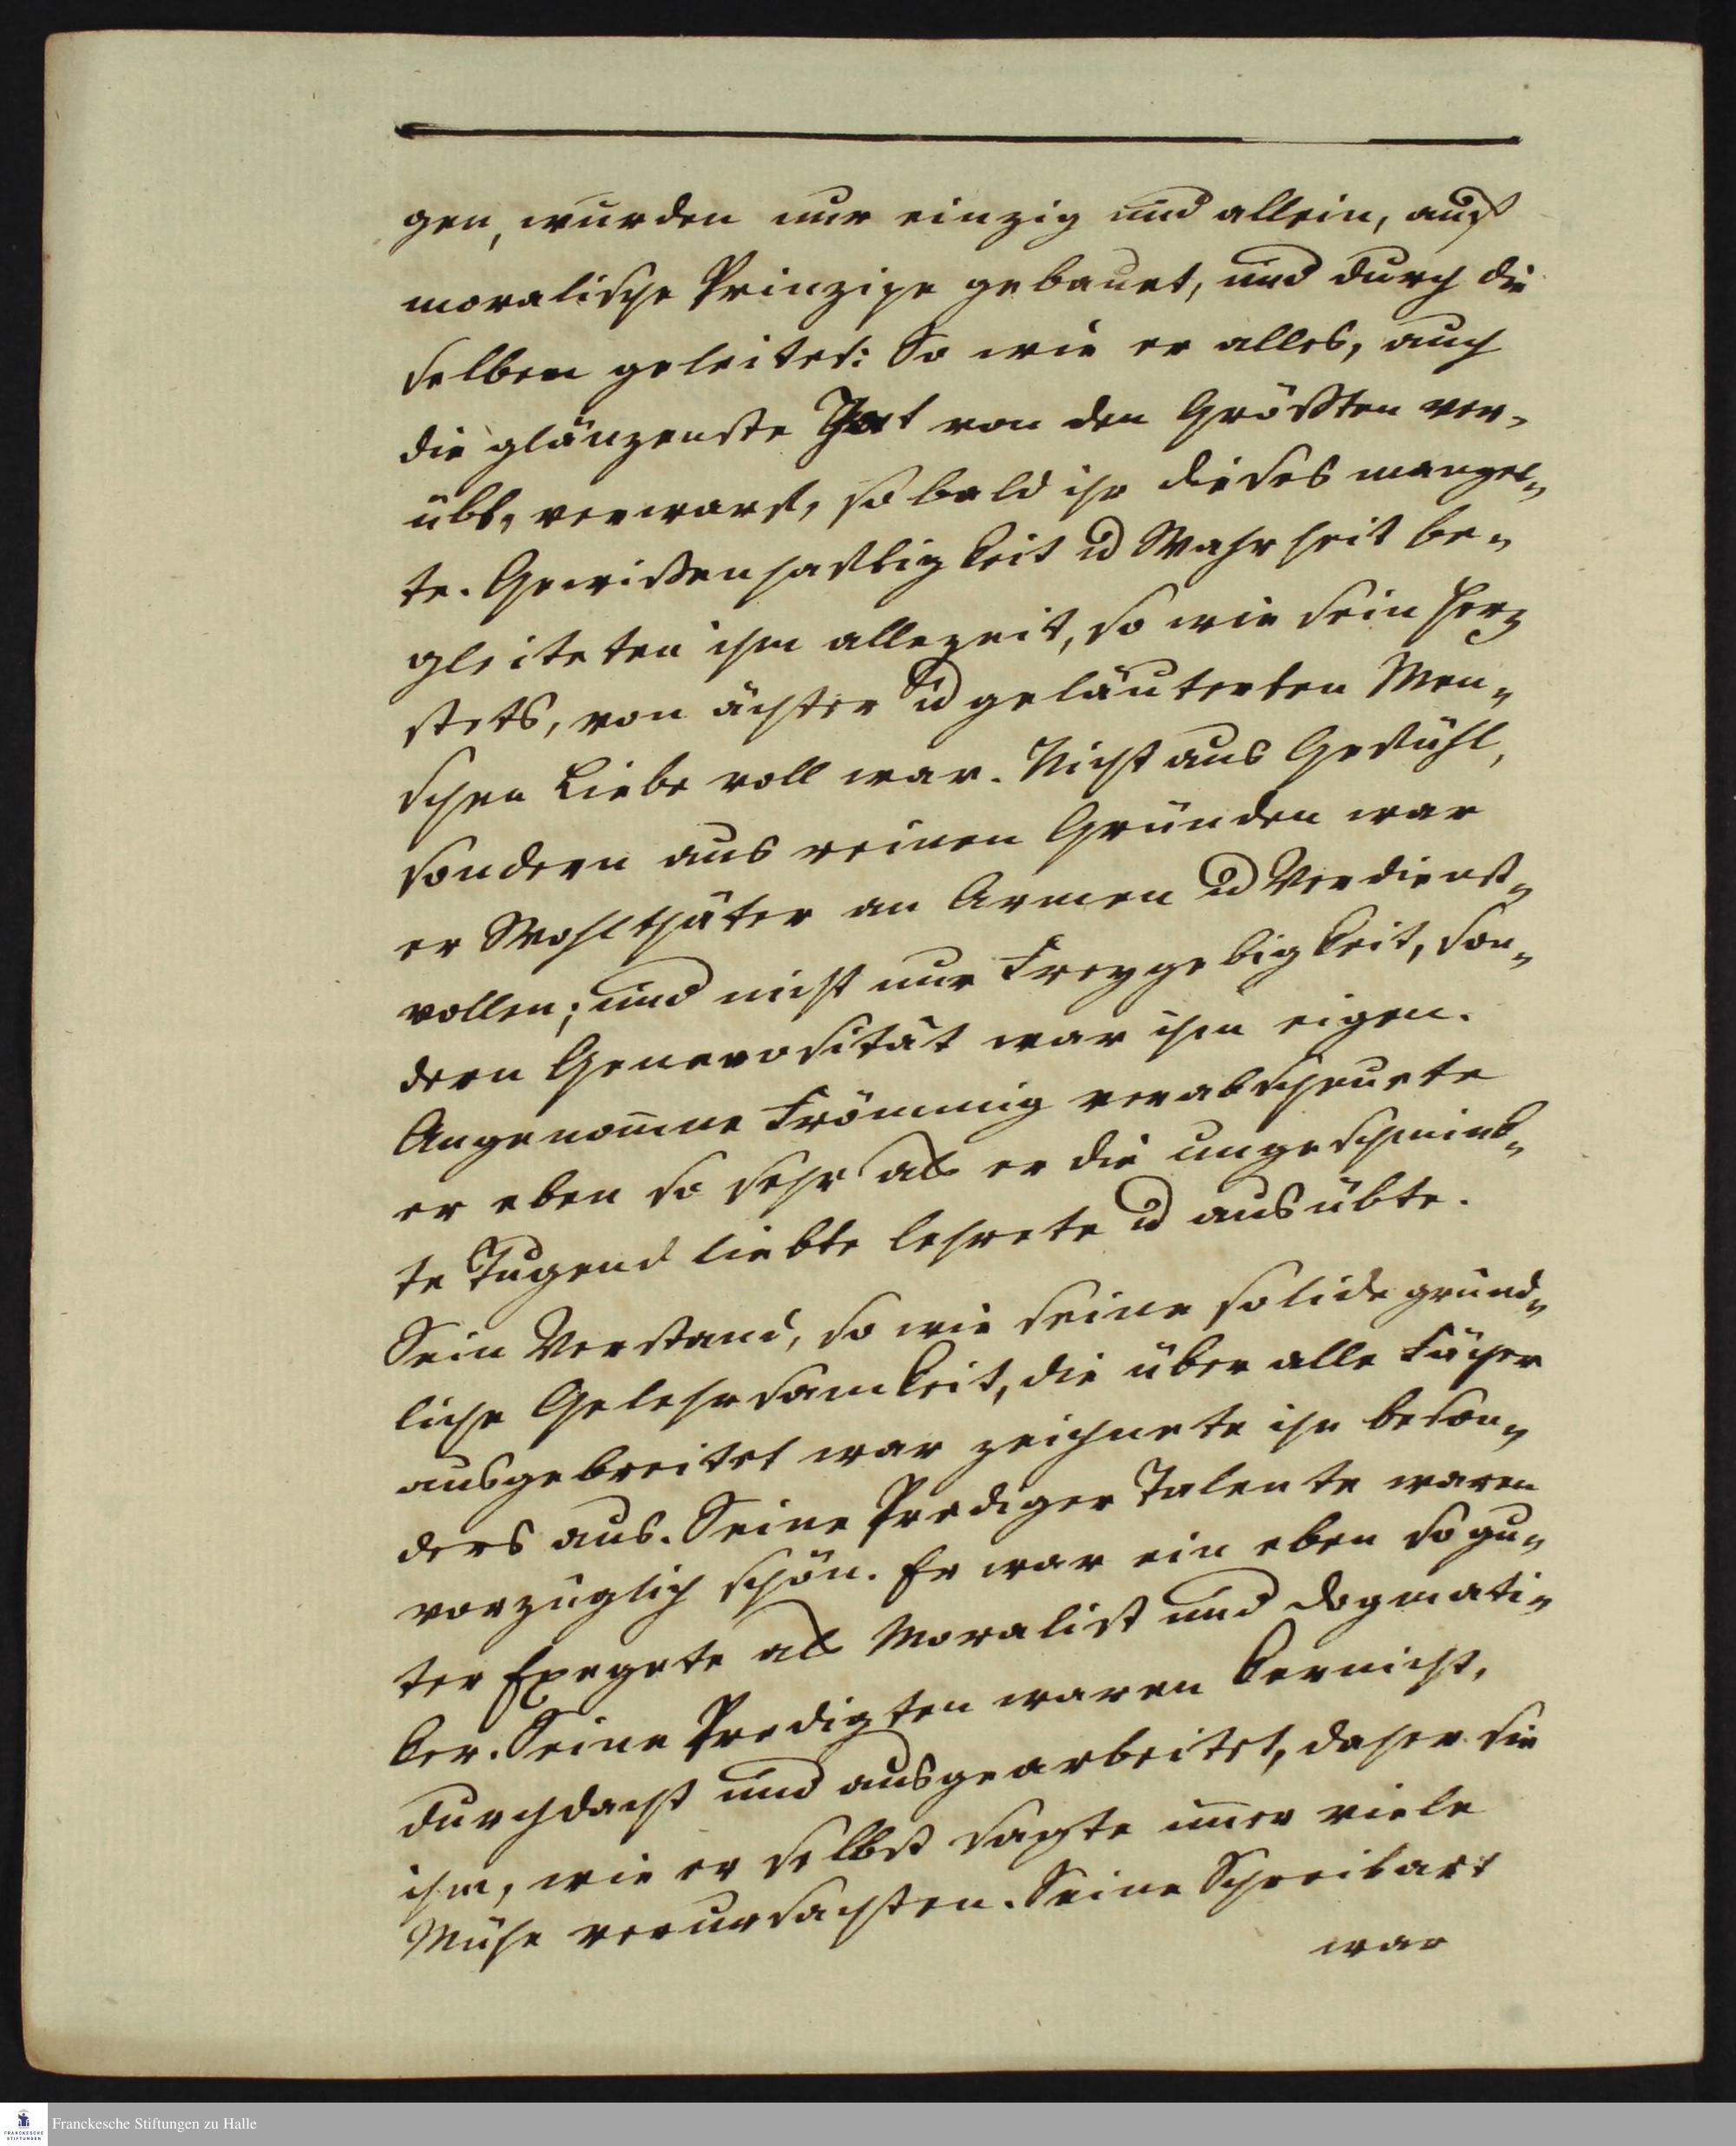 gen, wurden nur einzig und allein, auf
moralische Prinzipe gebauet, und durch die
selben geleitet: So wie er alles, auch
die glänzenste That von den Grösten ver-
übt, verwarf, so bald ihr dieses mangel-
te. Gewißenhaftigkeit u Wahrheit be-
gleiteten ihm allezeit, so wie sein Herz
stets, von ächter u geläuterten Men-
schen Liebe voll war. Nicht aus Gefühl,
sondern aus reinen Gründen war
er Wohlthäter an Armen u Verdienst-
vollen; und nicht nur Freygebigkeit, son-
dern Generosität war ihm eigen.
Angenom̄ne Frömmig verabscheuete
er eben so sehr als er die ungeschmink-
te Tugend liebte lehrete u ausübte.
Sein Verstand, so wie seine solide gründ-
liche Gelehrsamkeit, die über alle Fächer
ausgebreitet war zeichnete ihn beson-
ders aus. Seine Prediger Talente waren
vorzüglich schön. Er war ein eben so gu-
ter Exegete als Moralist und Dogmati-
ker. Seine Predigten waren kernicht,
durchdacht und ausgearbeitet, daher sie
ihm, wie er selbst sagte im̄er viele
Mühe verursachten. Seine Schreibart
war
Franckesche Stiftungen zu Halle
FRANCKESCHE
STIFTUNGEN